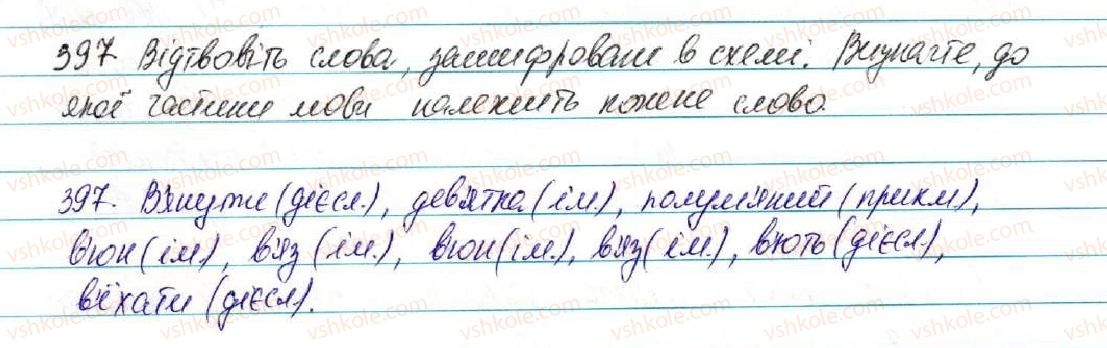 397 Відтвовіть слова, зашифровані в схемі. Визначте, до
якої частини мови належить кожне слово.
397. В'януть (дієсл.), дев'ятка (ім), полум'яний (прикм),
в'юн (ім.), в'яз (ім.), в'юн (ім.), в'яз (ім.), в'ють (дієсл.),
в'їхати (дієсл).